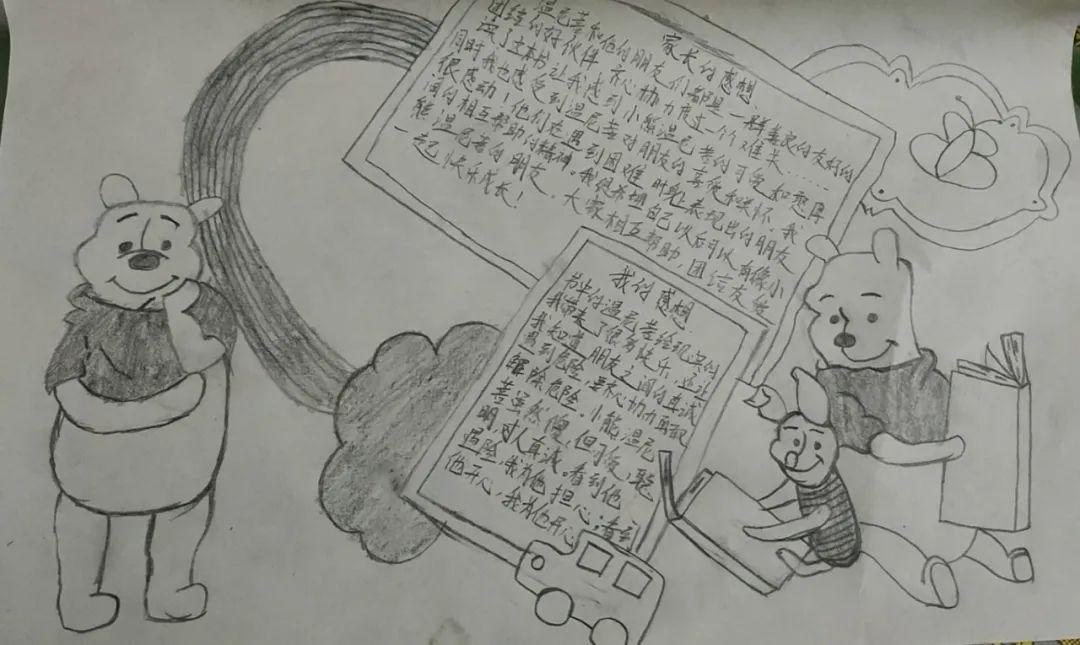 家长的感想.
温尼菩和他的朋友们都是一群善良的友好的
团结的好伙伴 齐心协力度过一个个难关……
读了本书让我感到小熊温尼菩的可爱如憨厚
同时我也感受到温尼菩对朋友的喜爱和关怀.我
很感动!他们在遇到困难时既表现出的朋友
间的相互帮助的精神。我很希望自己以后可以有像小
熊温尼菩的朋友。大家相互帮助,团结友爱
一起快乐成长!
我的感想.
书中的温尼菩给现实的
我带来了很多快乐,也让
我知道朋友之间的真诚
遇到危险,要齐心协力取
解除危险。小熊温尼
菩虽然傻,但可爱,聪
明,对人真诚。看到他
危险,我为他担心;看到
他开心,我为他开心